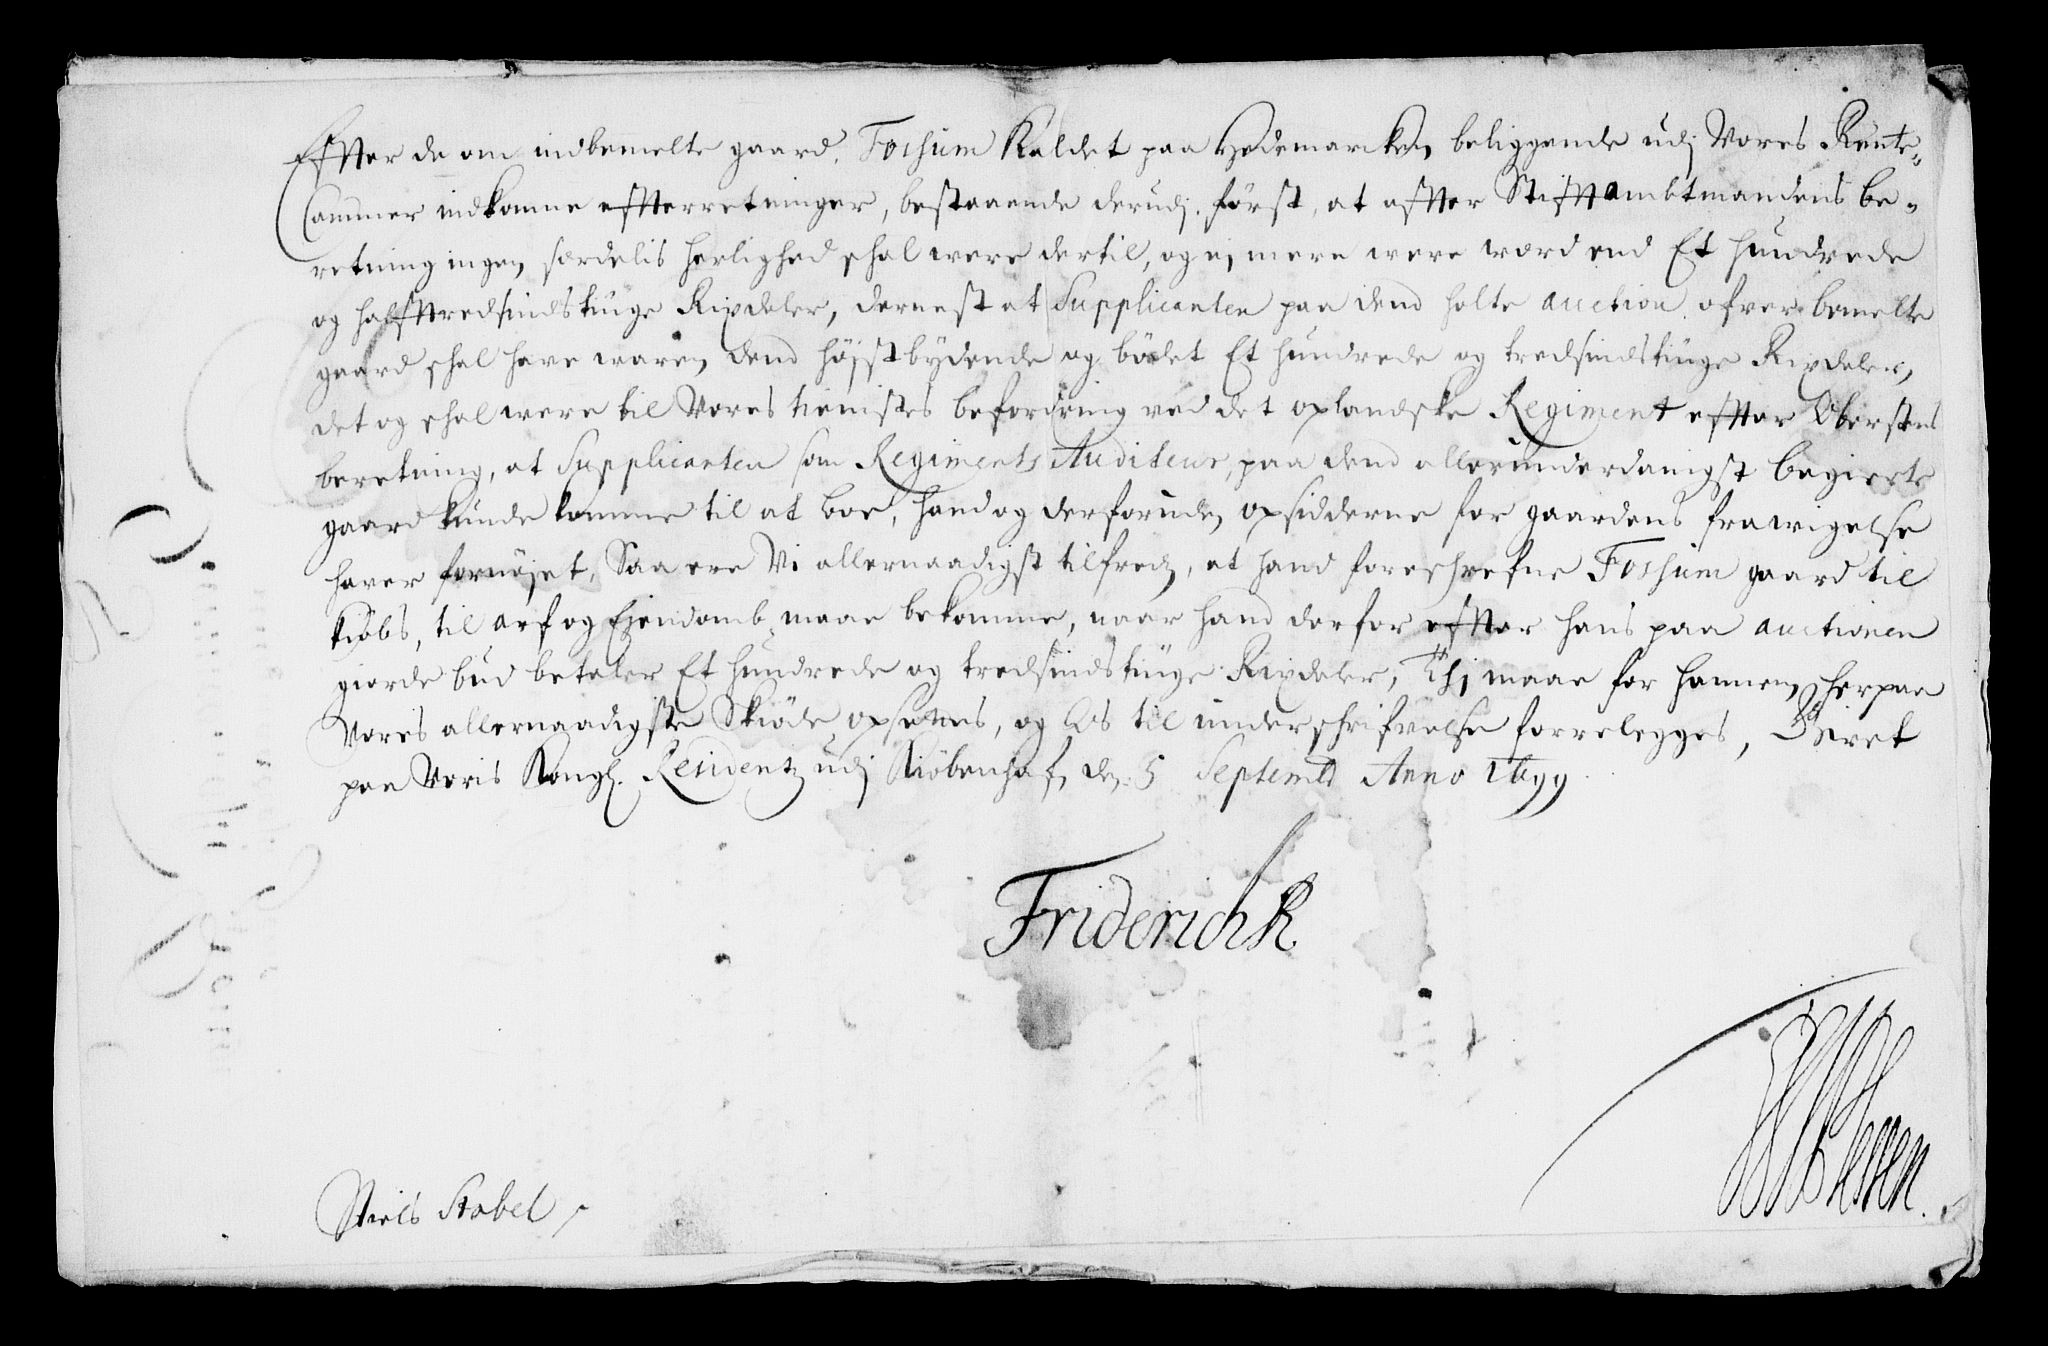 Effter de om indbemelte gaard, Fossum Kaldet paa Hedemarcken beliggende udj Vores Rente-
Cammer indkomne effterretninger, bestaaende derudj. först, at effter Stifftambtmandens be-
retning ingen særdelis herlighed skal were dertil, og ej mere were word end Et hundrede
og halfftredsindstiuge Rixdaler, dernest at Supplicanten paa dend holte auction ofver bemelte
gaard skal have waren dend höjstbydende og bödet Et hundrede og tredsindstiuge Rixdaler,
det og skal were til Vores tienistes befordring ved det oplandske Regiment effter Oberstens
beretning, at Supplicanten som Regiments Auditeur, paa dend allerunderdanigst begierte
gaard kunde komme til at boe, hand og derforuden opsidderne for gaardens frawigelse
haver fornöjet, Saa ere Vi allernaadigst tilfredz, at hand foreskrefne Fossum gaard til
kiöbs, til arf og Ejendomb maae bekomme, naar hand derfor effter hans paa auctionen
giorde bud betaler Et hundrede og tredsindstiuge Rixdaler, Thj maae for hannem herpaa
Vores allernaadigste Skiöde opsettes, og Os til underskrifvelse forrelegges, Skrevet
paa Voris Kongl. Residentz udj Kiöbenhafn den 5 Septembr Anno 1699.
Friderich R.
Niels Stobel